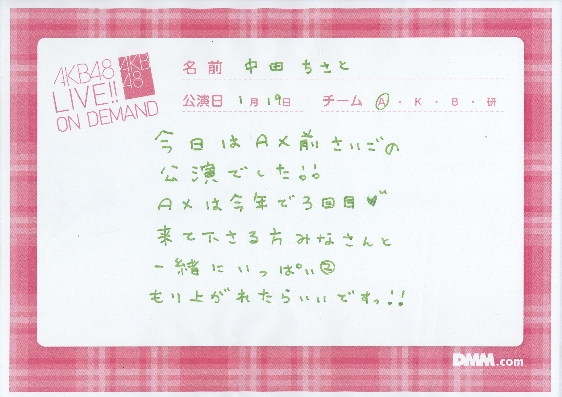 AKB48
LIVE!!
ON DEMAND
AKB
48
名前 中田 ちさと
公演日 1月19日 チーム A・K・B・研
今日はAX前さいごの
公演でした!!
AXは今年で3回目♥
来て下さる方みなさんと
一緒にいっぱい②
もり上がれたらいいですっ!!
DMM.com